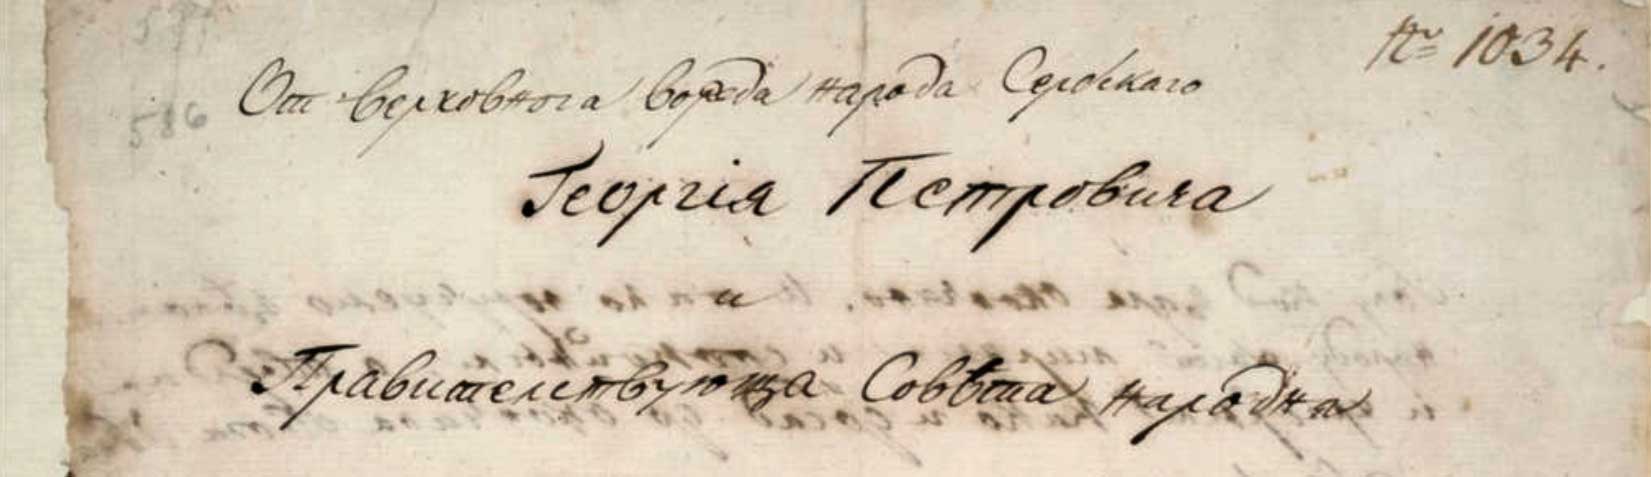 № 1034.
586
От верховнога вожда народа Сербскаго
Георгія Петровича
и
Правителствующа Совѣта народна